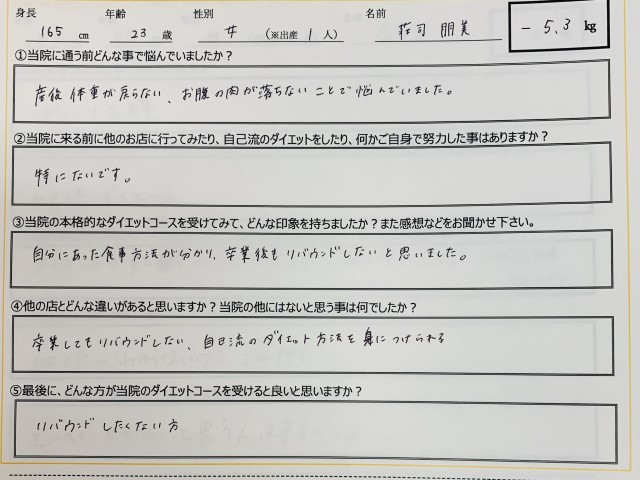 身長 165 cm 年齢 23 歳 性別 女 (※出産 1 人) 名前 荘司 朋美 -5.3 kg
①当院に通う前どんな事で悩んでいましたか?
産後 体重が戻らない、お腹の肉が落ちないことで悩んでいました。
②当院に来る前に他のお店に行ってみたり、自己流のダイエットをしたり、何かご自身で努力した事はありますか?
特にないです。
③当院の本格的なダイエットコースを受けてみて、どんな印象を持ちましたか?また感想などをお聞かせ下さい。
自分にあった食事方法が分かり、卒業後もリバウンドしないと思いました。
④他の店とどんな違いがあると思いますか?当院の他にはないと思う事は何でしたか?
卒業してもリバウンドしない、自己流のダイエット方法を身につけられる
⑤最後に、どんな方が当院のダイエットコースを受けると良いと思いますか?
リバウンドしたくない方